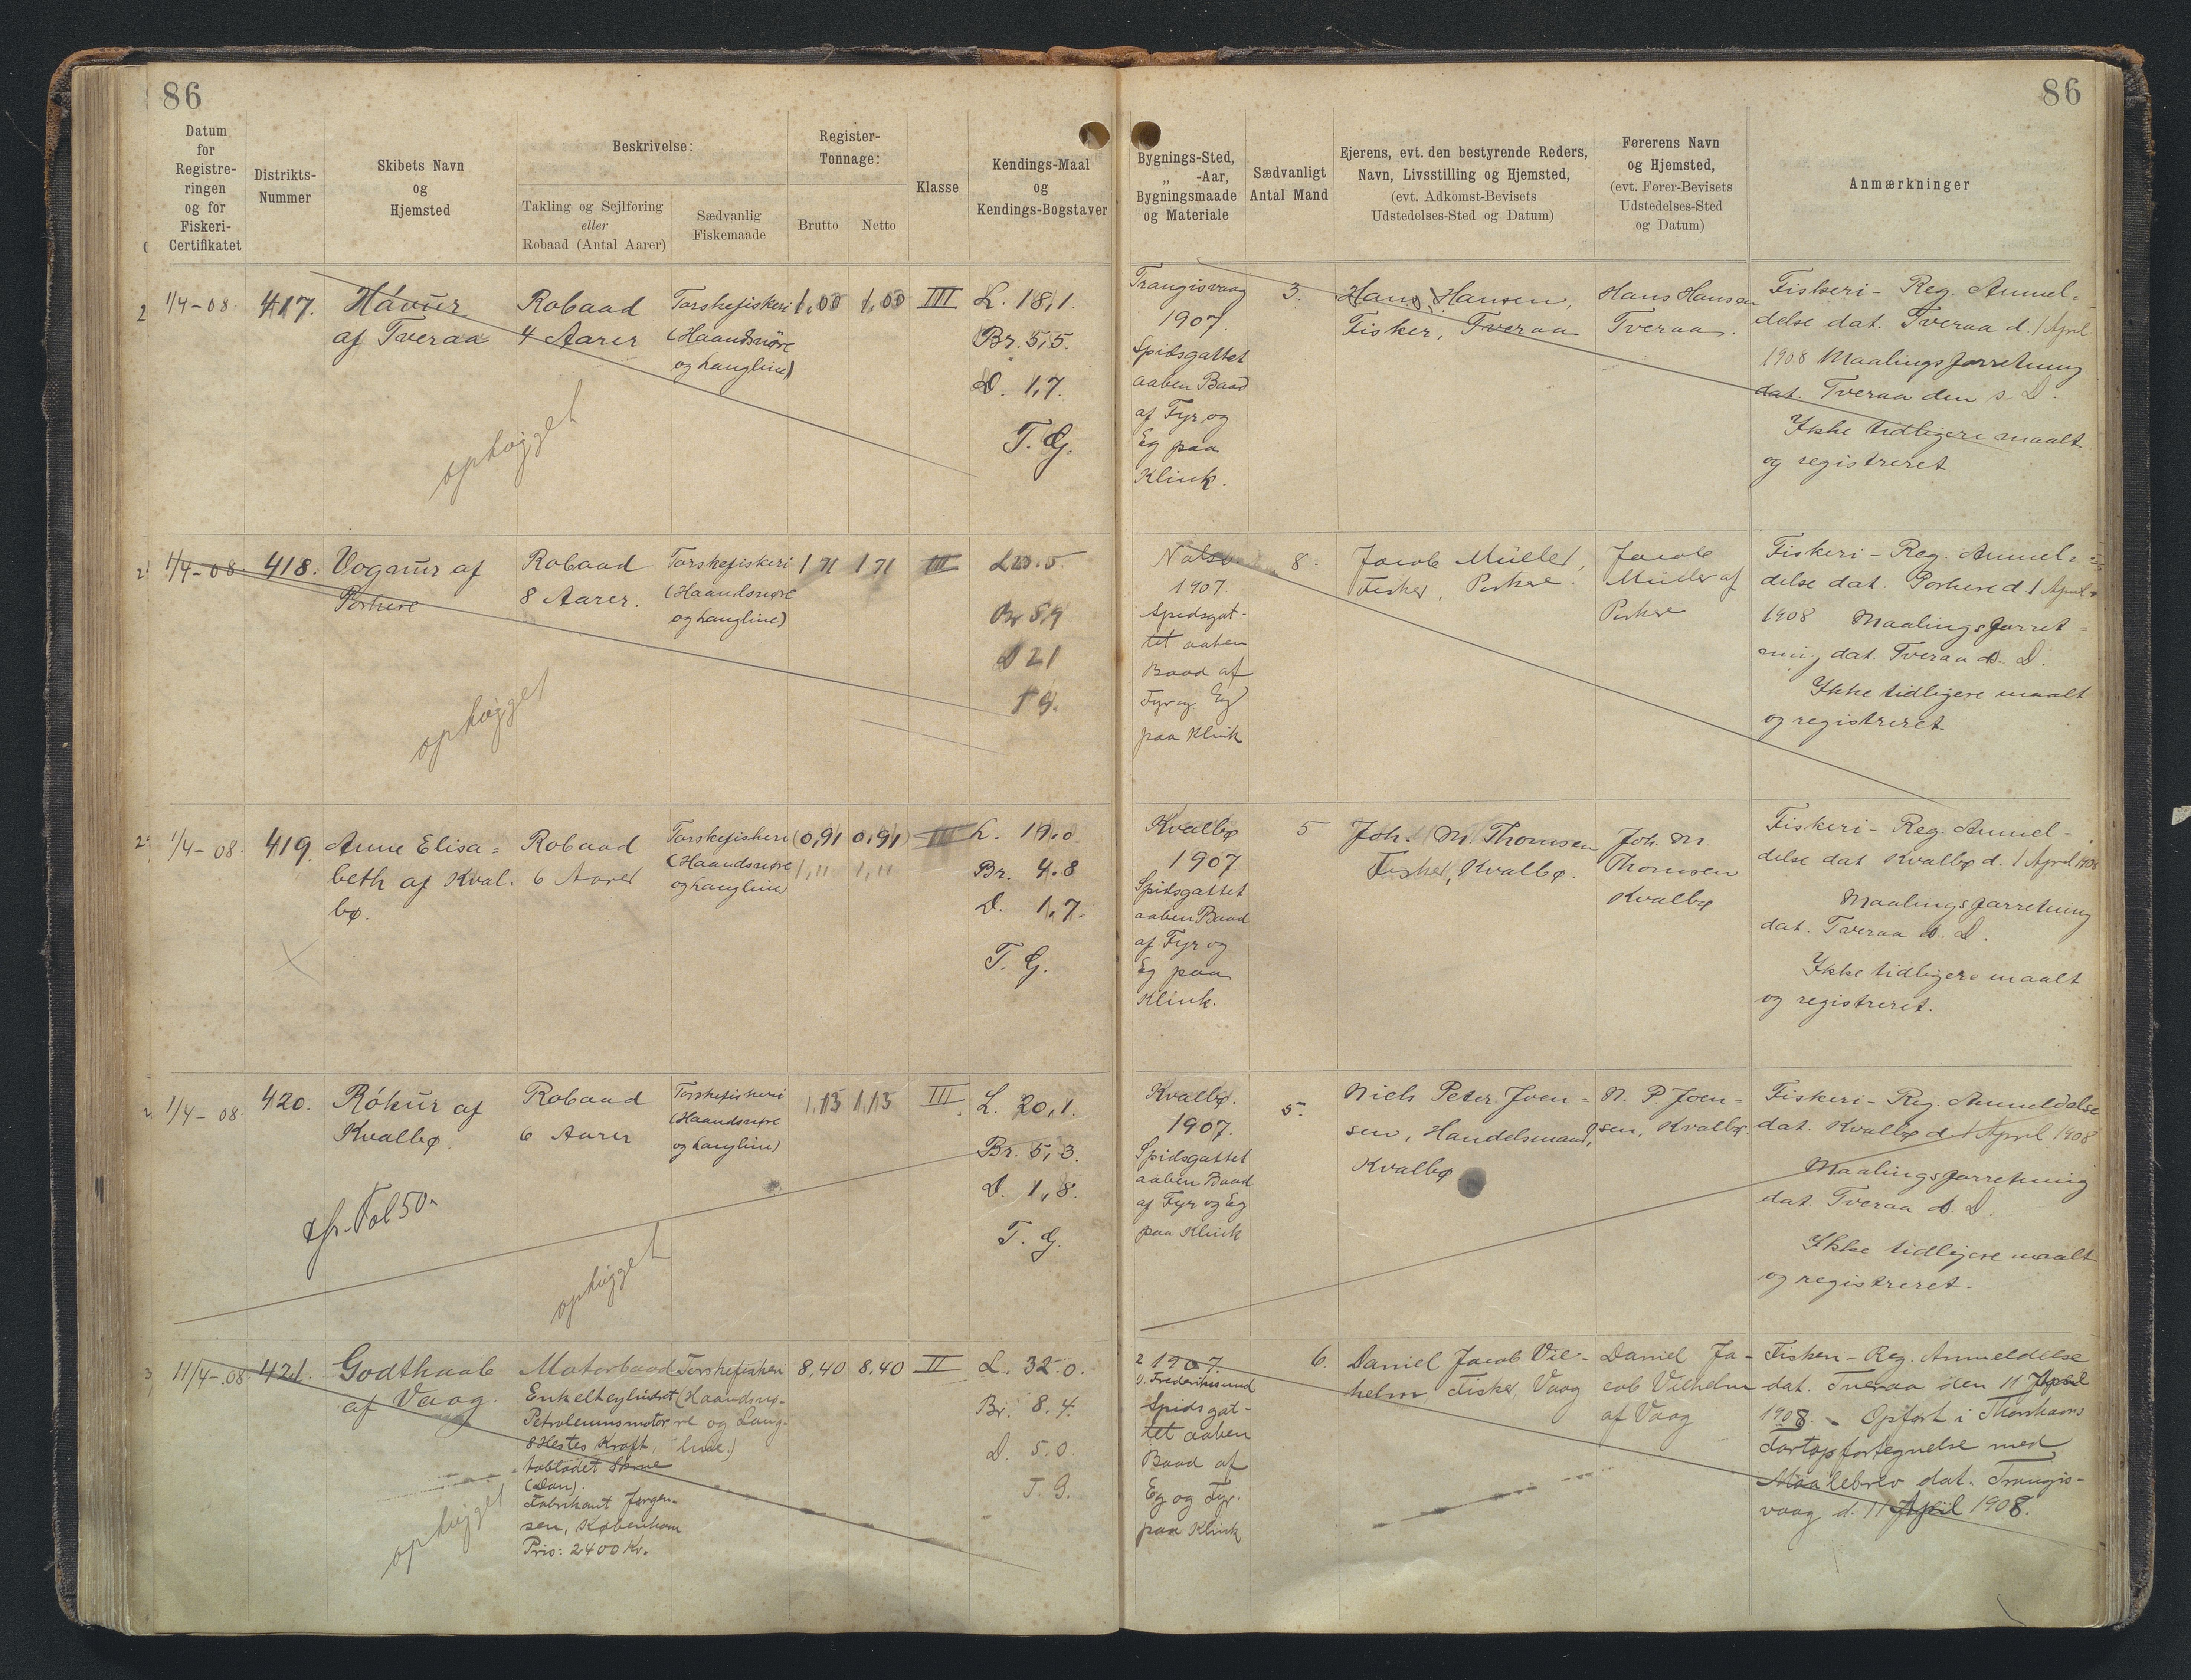 86
86
Datum
for
Registre-
ringen
og for
Fiskeri-
Certifikatet
Distrikts-
Nummer
Skibets Navn
og
Hjemsted
Beskrivelse:
Takling og Sejlføring
eller
Robaad (Antal Aarer)
Sædvanlig
Fiskemaade
Register-
Tonnage:
Brutto
Netto
Klasse
Kendings-Maal
og
Kendings-Bogstaver
Bygnings-Sted,
„ -Aar,
Bygningsmaade
og Materiale
Sædvanligt
Antal Mand
Ejerens, evt. den bestyrende Reders,
Navn, Livsstilling og Hjemsted,
(evt. Adkomst-Bevisets
Udstedelses-Sted og Datum)
Førerens Navn
og Hjemsted,
(evt. Fører-Bevisets
Udstedelses-Sted
og Datum)
Anmærkninger
1/4-08.
417.
Hávur
af Tveraa
Robaad
4 Aarer
Torskefiskeri
(Haandsnøre
og Langline)
1,00
1,00
III
L. 18,1.
Br. 5,5.
D. 1,7.
T. G.
ophøgget
Trangisvaag
1907.
Spidsgattet
aaben Baad
af Fyr og
Eg paa
Klink.
3.
Hans Hansen,
Fisker, Tveraa
Hans Hansen
Tveraa.
Fiskeri- Reg. Anmel-
delse dat. Tveraa d. 1 April
1908 Maalingsforretning
dat. Tveraa den s. D.
Ikke tidligere maalt
og registreret.
1/4-08.
418.
Vognur af
Porkere
Robaad
8 Aarer.
Torskefiskeri
(Haandsnøre
og Langline)
1,71
1,71
III
L 23.5
Br 5,9
D 2,1
T G.
ophøgget
Nolsø
1907.
Spidsgat-
tet aaben
Baad af
Fyr og Eg
paa Klink
8.
Jacob Müller,
Fisker, Porkere.
Jacob
Müller af
Porkere
Fiskeri- Reg. Anmel-
delse dat. Porkere d. 1 April
1908 Maalingsforret-
ning dat. Tveraa s. D.
Ikke tidligere maalt
og registreret
1/4-08.
419.
Anne Elisa-
beth af Kval-
bø.
Robaad
6 Aarer
Torskefiskeri
(Haandsnøre
og Langline)
(0,91
0,91)
1,11
1,11
III
L. 19.0
Br. 4.8
D. 1,7.
T. G.
Kvalbø
1907.
Spidsgattet
aaben Baad
af Fyr og
Eg paa
Klink.
5
Joh. M. Thomsen
Fisker, Kvalbø.
Joh. M.
Thomsen
Kvalbø
Fiskeri- Reg. Anmel-
delse dat Kvalbø d. 1 April 1908
Maalingsforretning
dat. Tveraa s. D.
Ikke tidligere maalt
og registreret.
1/4-08.
420.
Rókur af
Kvalbø.
Robaad
6 Aarer
Torskefiskeri
(Haandsnøre
og Langline)
1,13
1,13
III
L. 20,1.
Br. 5,3.
D. 1,8.
T. G.
cfr. Fol 50
ophøgget
Kvalbø.
1907.
Spidsgattet
aaben Baad
af Fyr og Eg
paa Klink
5.
Niels Peter Joen-
sen, Handelsmand,
Kvalbø
N. P Joen-
sen, Kvalbø.
Fiskeri- Reg. Anmeldelse
dat. Kvalbø d. 1 April 1908
Maalingsforretning
dat. Tveraa s. D.
Ikke tidligere maalt
og registreret.
11/4-08.
421.
Godthaab
af Vaag.
Motorbaad
Enkeltcylindret
Petroleumsmotor
8 Hestes Kraft,
Skrue
(Dan).
Fabrikant Jørgen-
sen, København
Pris: 2400 Kr.
Torskefiskeri
(Haandsnø-
re og Lang-
line.)
8,40
8,40
II
L. 32.0.
Br. 8.4.
D. 5.0.
T. G.
ophøgget
1907.
Frederikssund
Spidsgat-
tet aaben
Baad af
Eg og Fyr
paa Klink
6.
Daniel Jacob Vil-
helm, Fisker, Vaag
Daniel Ja-
cob Vilhelm
af Vaag
Fiskeri- Reg. Anmeldelse
dat. Tveraa den 11 April
1908. - Opført i Thorshavns
fortegnelse med
Maalebrev dat. Trangis-
vaag d. 11 April 1908.